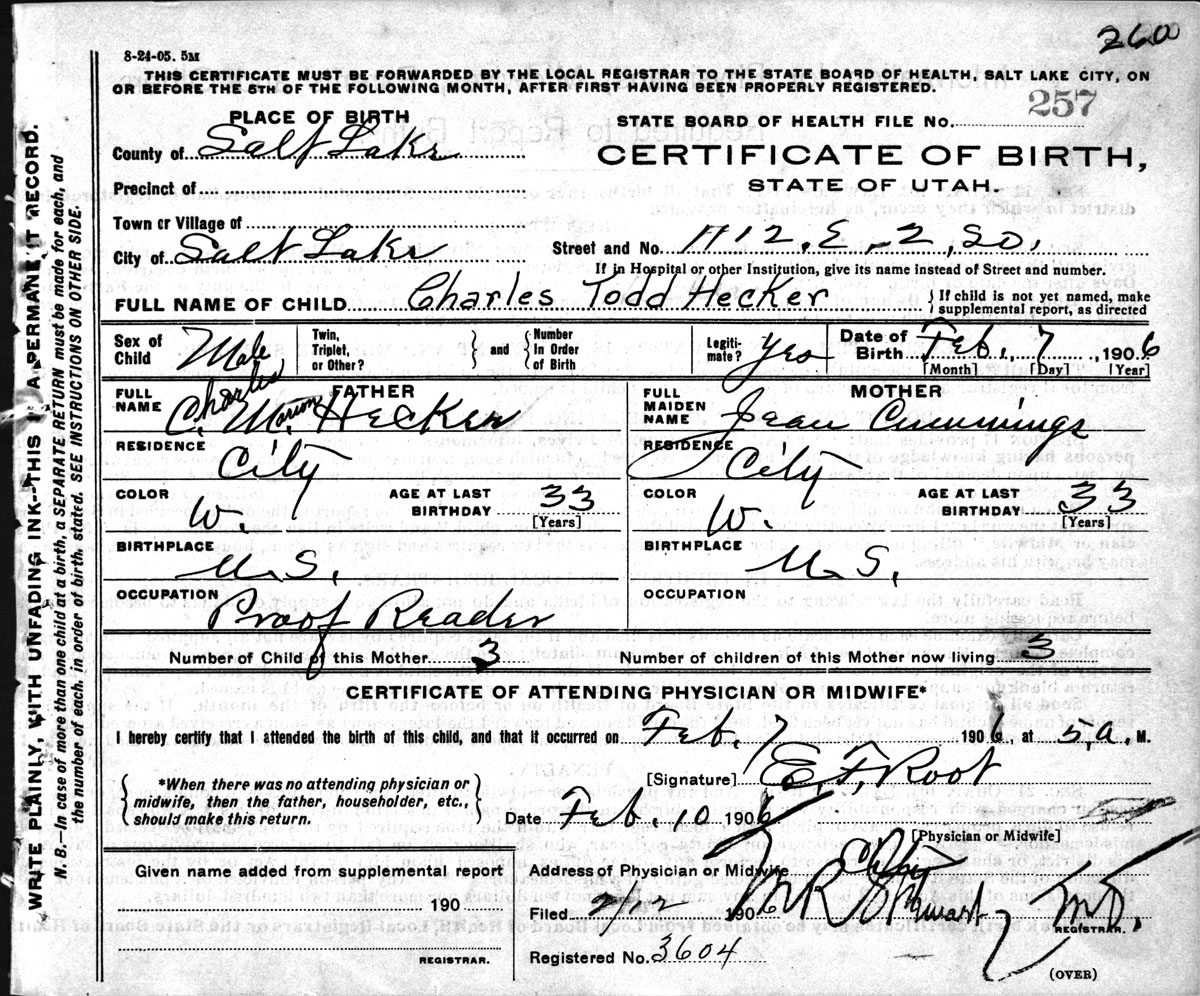 2600
8-24-05. 5M
THIS CERTIFICATE MUST BE FORWARDED BY THE LOCAL REGISTRAR TO THE STATE BOARD OF HEALTH, SALT LAKE CITY, ON
OR BEFORE THE 5TH OF THE FOLLOWING MONTH, AFTER FIRST HAVING BEEN PROPERLY REGISTERED.
WRITE PLAINLY, WITH UNFADING INK--THIS IS A PERMANENT RECORD.
N. B.--In case of more than one child at a birth, a SEPARATE RETURN must be made for each, and
the number of each, in order of birth, stated. SEE INSTRUCTIONS ON OTHER SIDE.
PLACE OF BIRTH
STATE BOARD OF HEALTH FILE No. 257
County of Salt Lake
CERTIFICATE OF BIRTH,
STATE OF UTAH.
Precinct of
Town or Village of
City of Salt Lake
Street and No. 1112. E-2, So.
If in Hospital or other Institution, give its name instead of Street and number.
FULL NAME OF CHILD Charles Todd Hecker
If child is not yet named, make
supplemental report, as directed
Sex of Child Male
Twin, Triplet, or Other?
and
Number In Order of Birth
Legiti- mate? yes
Date of Birth Feb., 7, 1906
[Month] [Day] [Year]
FATHER
FULL NAME Charles C. M. Marion Hecker
RESIDENCE City
COLOR W.
AGE AT LAST BIRTHDAY 33
[Years]
BIRTHPLACE U.S.
OCCUPATION Proof Reader
MOTHER
FULL MAIDEN NAME Jean Cummings
RESIDENCE City
COLOR W.
AGE AT LAST BIRTHDAY 33
[Years]
BIRTHPLACE U.S.
OCCUPATION
Number of Child of this Mother 3
Number of children of this Mother now living 3
CERTIFICATE OF ATTENDING PHYSICIAN OR MIDWIFE*
I hereby certify that I attended the birth of this child, and that it occurred on Feb. 7 1906, at 5, a. M.
*When there was no attending physician or
midwife, then the father, householder, etc.,
should make this return.
[Signature] E. F. Root
Date Feb. 10 1906
[Physician or Midwife]
Given name added from supplemental report
190
REGISTRAR.
Address of Physician or Midwife City
Filed 2/12 1906 M R Stewart M.D.
REGISTRAR.
Registered No. 3604
(OVER)